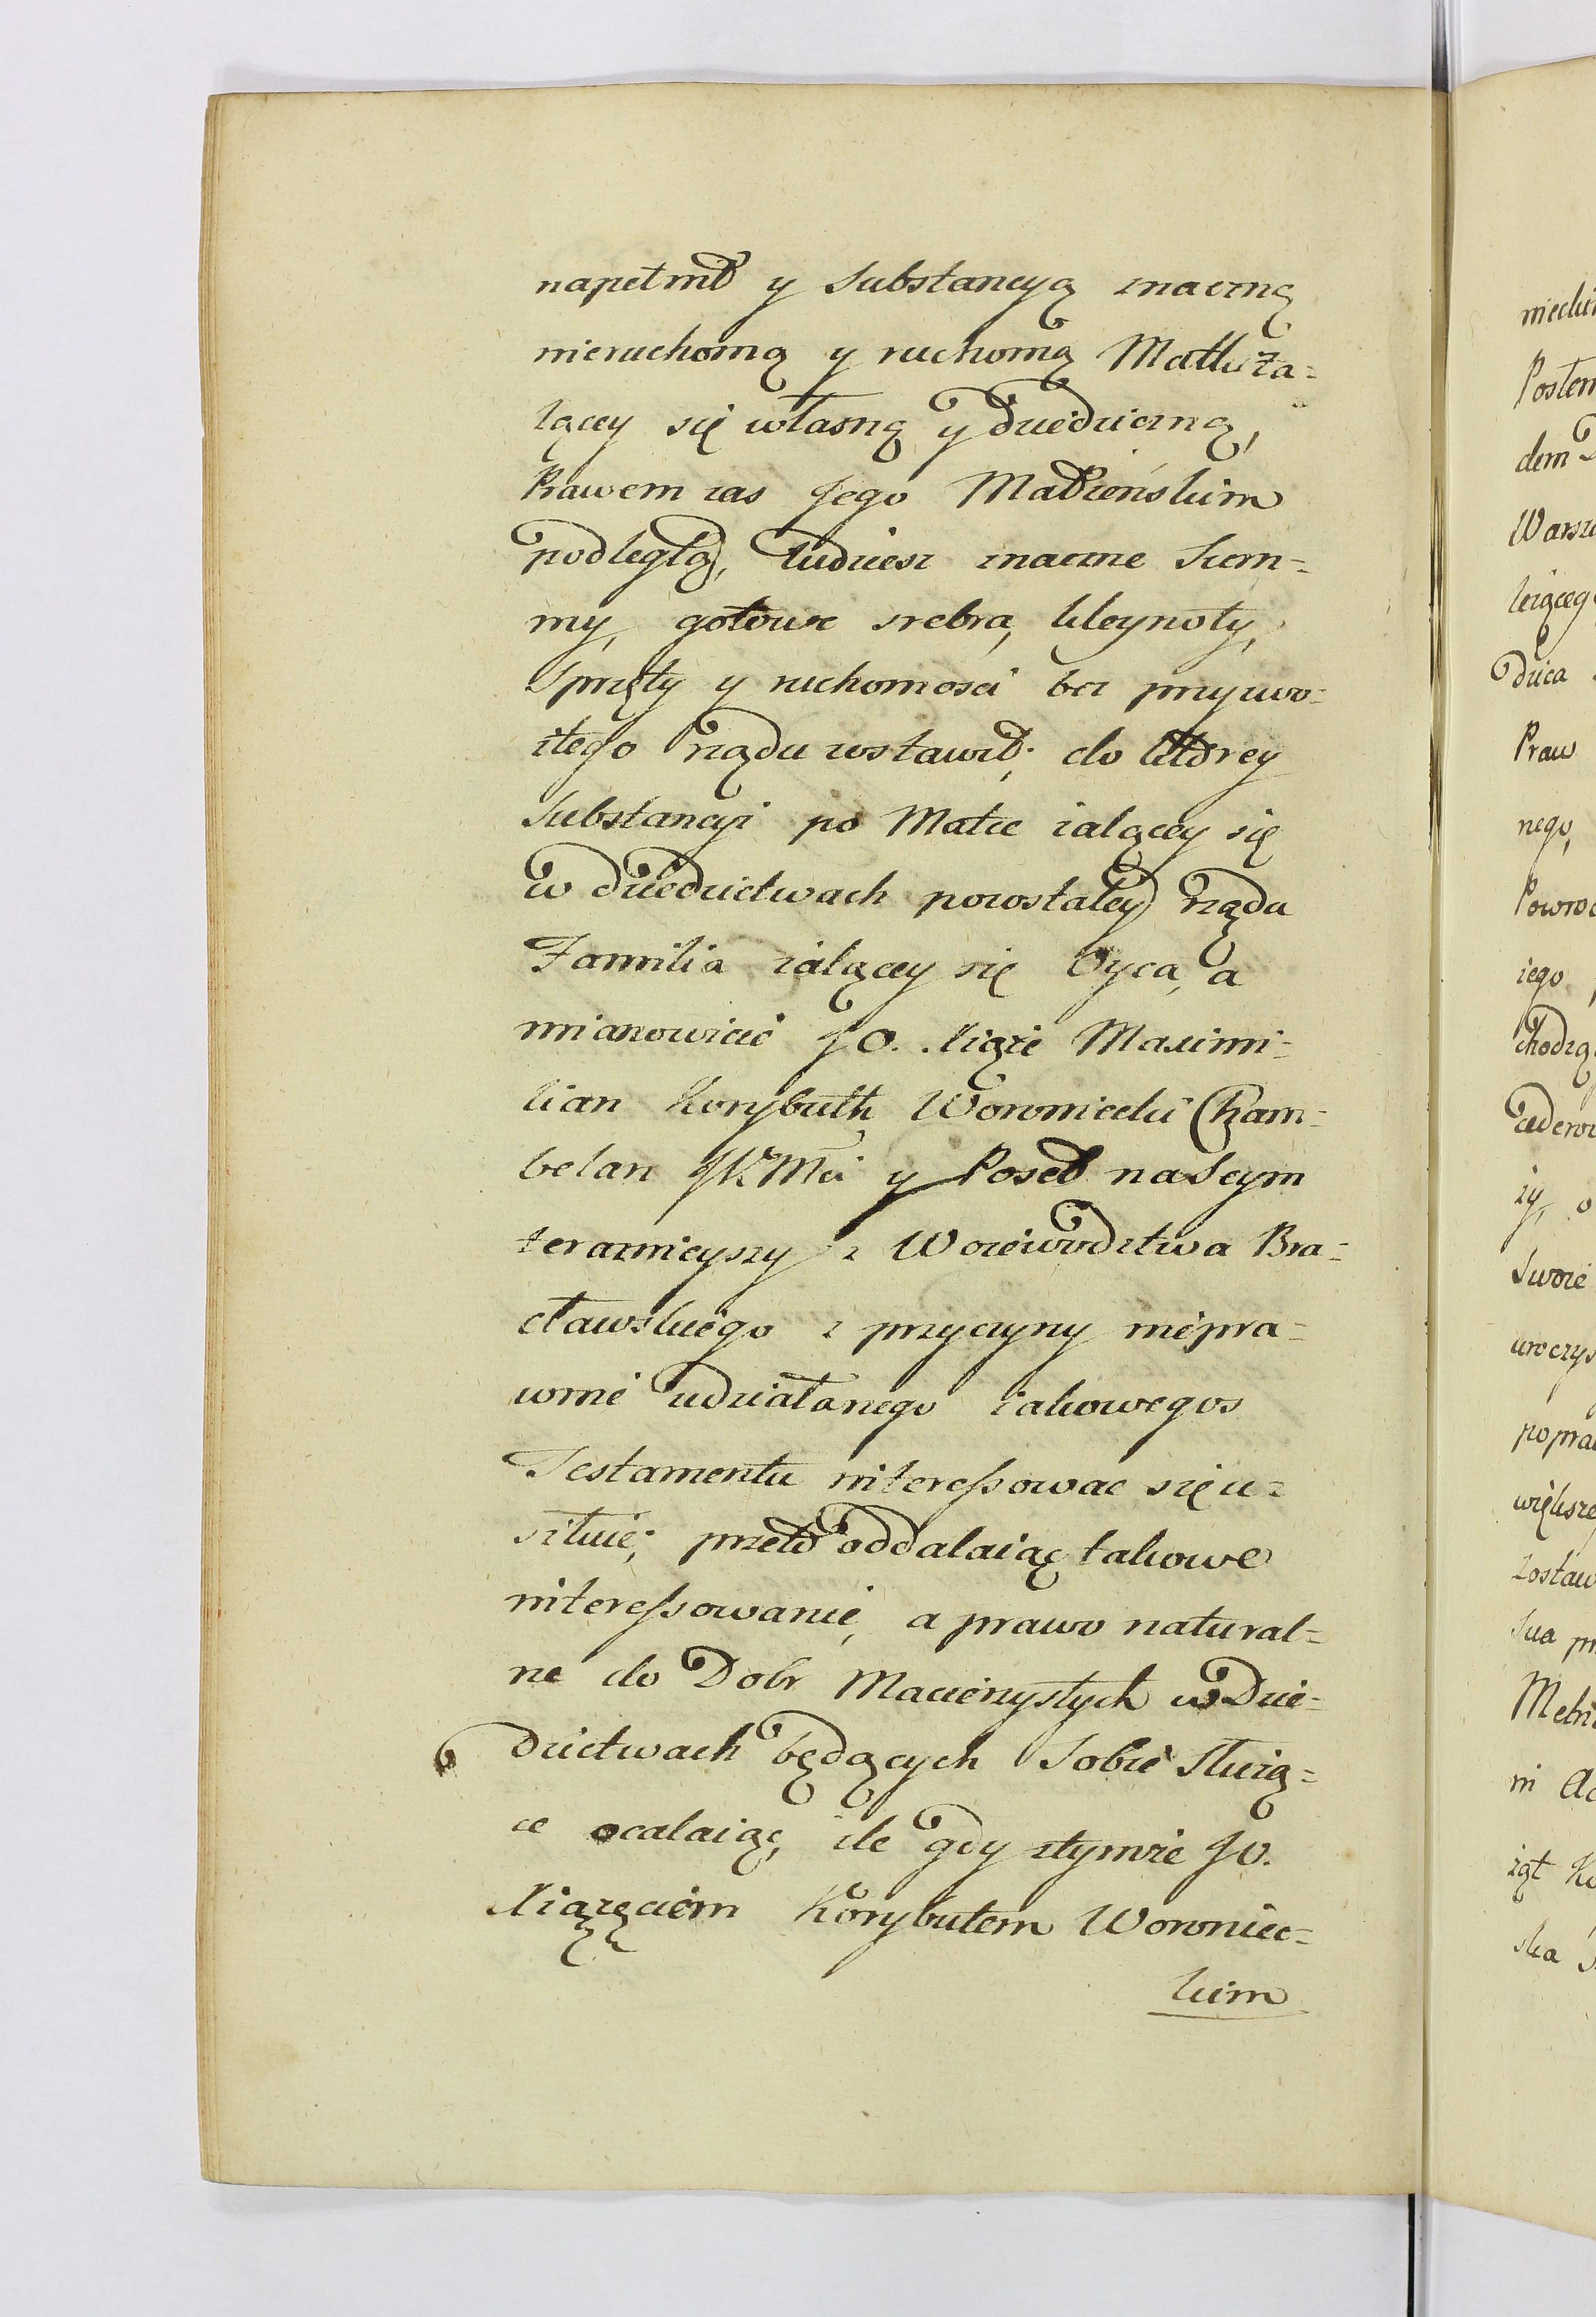 napełnił y Substancyą znaczną
nieruchomą y ruchomą Matki Ża=
lącey się własną y dziedziczną,
Prawem zas Jego Małżeńskim
podległą, tudziesz znaczne Sum=
my, gotowe srebra, kleynoty,
Sprzęty y ruchomosci bez przyzwo=
itego rządu zostawił; do którey
Substancyi po Matce żalącey się
w dziedzictwach pozostałey rządu
Familia żalącey się Oyca, a
mianowicie JO. Xiąże Maximi=
lian Korybuth Woroniecki Cham=
belan JKMci y Poseł na Seym
teraznieyszy z Woiewodztwa Bra=
cławskiego z przyczyny niepra=
wnie udziałanego iakowegos
Testamentu interessowac się u=
siłuie; przeto oddalaiąc takowe
interessowanie, a prawo natural=
ne do Dobr Macierzystych w Dzie=
dzictwach będących Sobie Służą=
ce ocalaiąc, ile gdy ztymże JO.
Xiązęciem Korybutem Woroniec=
kim
Posłem
dem
Praw
nego,
iego
zy, o
Swoie